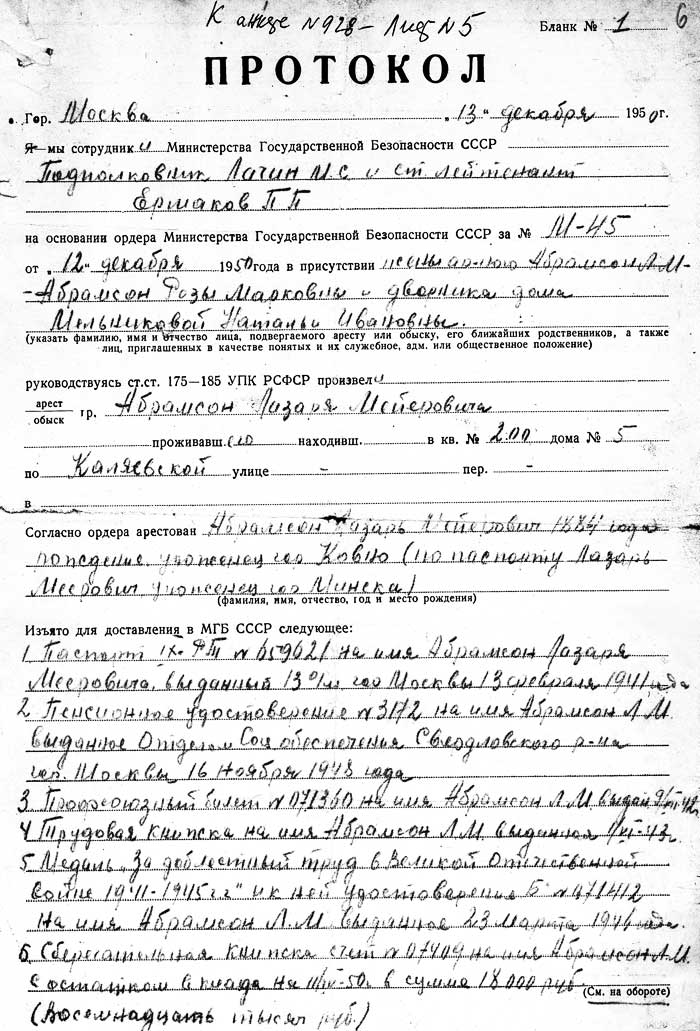 К анкете №928 – Лист №5
Бланк № 1 6
ПРОТОКОЛ
Гор. Москва „13“ декабря 1950г.
Я мы сотрудники Министерства Государственной Безопасности СССР
Подполковник Лачин М.С. и ст. лейтенант
Ермаков П П
на основании ордера Министерства Государственной Безопасности СССР за № М-45
от „12“ декабря 1950 года в присутствии Абрамсон Л.М-
-Абрамсон Розы Марковны и дворника дома
Мельниковой Натальи Ивановны.
(указать фамилию, имя и отчество лица, подвергаемого аресту или обыску, его ближайших родственников, а также
лиц, приглашенных в качестве понятых и их служебное, адм. или общественное положение)
руководствуясь ст.ст. 175—185 УПК РСФСР произвели
арест
обыск гр. Абрамсон Лазаря Мейеровича
проживавшего находивш. в кв. № 200 дома № 5
по Каляевской улице - пер. -
в
Согласно ордера арестован Абрамсон Лазарь Мейерович 1884 года
рождения, уроженец гор Ковно (по паспорту Лазарь
Меерович уроженец гор Минска)
(фамилия, имя, отчество, год и место рождения)
Изъято для доставления в МГБ СССР следующее:
1. Паспорт № 659621 на имя Абрамсон Лазаря
Мееровича, выданный 13 о/м гор Москвы 13 февраля 1941 года
2. Пенсионное удостоверение №3172 на имя Абрамсон Л.М.
выданное Отделом Соц обеспечения Свердловского р-на
гор. Москвы 16 ноября 1948 года
3. Профсоюзный билет №071360 на имя Абрамсон Л.М. выдан
4. Трудовая книжка на имя Абрамсон Л.М. выданная
5. Медаль „За доблестный труд в Великой Отечественной
Войне 1941-1945 г.г“ и к ней удостоверение Б №0471412
на имя Абрамсон Л.М. выданное 23 марта 1946 года.
6. Сберегательная книжка счет №07409 на имя Абрамсон Л.М.
с остатком вклада на в сумме 18 000 руб.
(См. на обороте)
(Восемнадцать тысяч руб.)